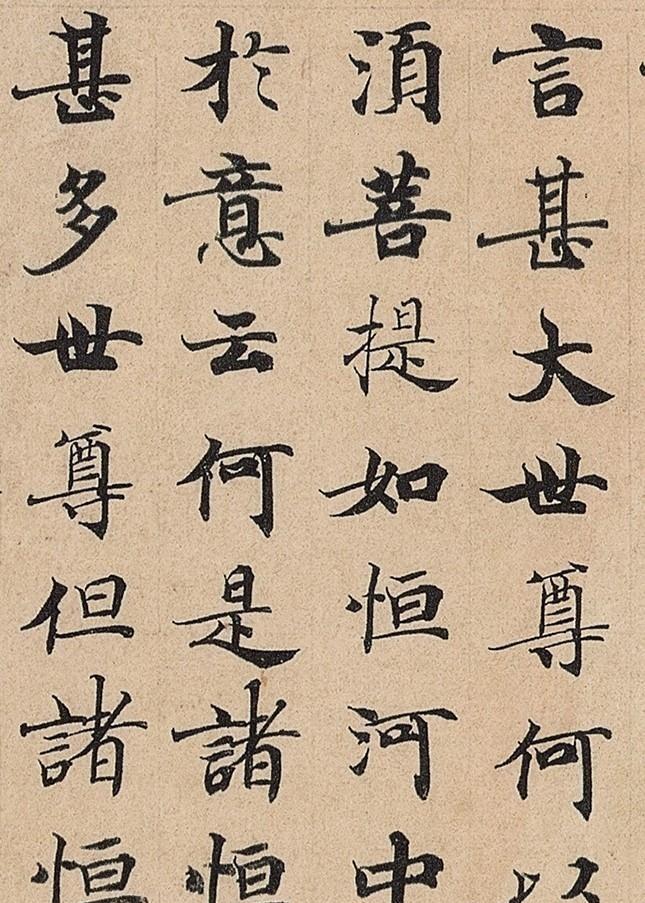 言甚大世尊何以
須菩提如恒河中
於意云何是諸恒
甚多世尊但諸恒